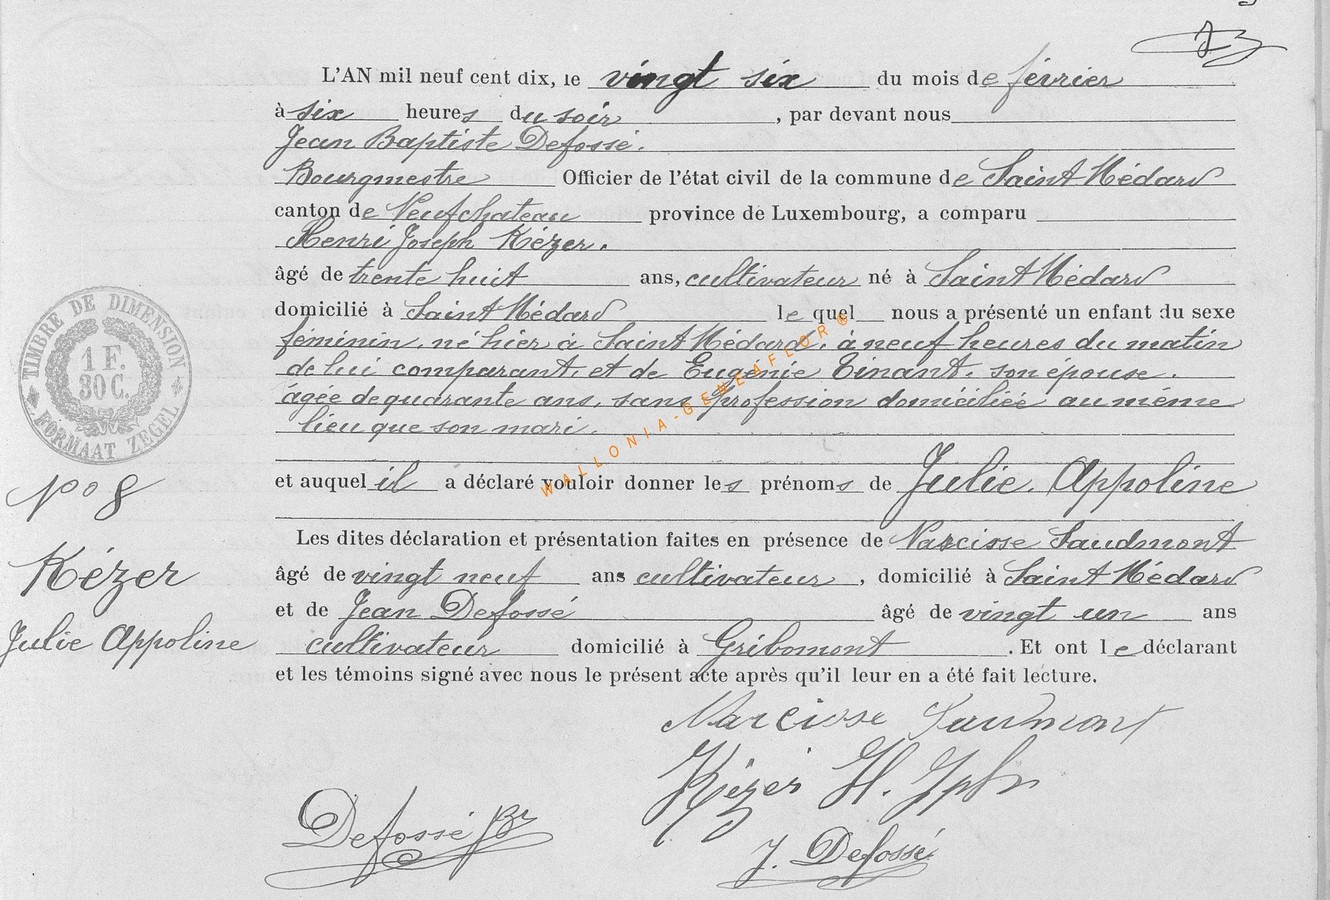 L'AN mil neuf cent dix, le vingt six du mois de février
à six heures du soir, par devant nous
Jean Baptiste Defossé.
Bourgmestre Officier de l'état civil de la commune de Saint Médard
canton de Neufchateau province de Luxembourg, a comparu
Henri Joseph Kézer.
âgé de trente huit ans, cultivateur né à Saint Médard
domicilié à Saint Médard le quel nous a présenté un enfant du sexe
féminin, né hier à Saint Médard, à neuf heures du matin
de lui comparant, et de Eugénie Tinant, son épouse.
âgée de quarante ans, sans profession domiciliée au même
lieu que son mari.
et auquel il a déclaré vouloir donner les prénoms de Julie, Appoline
Les dites déclaration et présentation faites en présence de Narcisse Saudmont
âgé de vingt neuf ans cultivateur, domicilié à Saint Médard
et de Jean Defossé âgé de vingt un ans
cultivateur domicilié à Gribomont. Et ont le déclarant
et les témoins signé avec nous le présent acte après qu'il leur en a été fait lecture.
Narcisse Saumont
Kézer H. Jph
Defossé JBt
J. Defossé
TIMBRE DE DIMENSION
1 F.
30 C.
FORMAAT ZEGEL
No 8
Kézer
Julie Appoline
WALLONIA-GENEAFLOR®